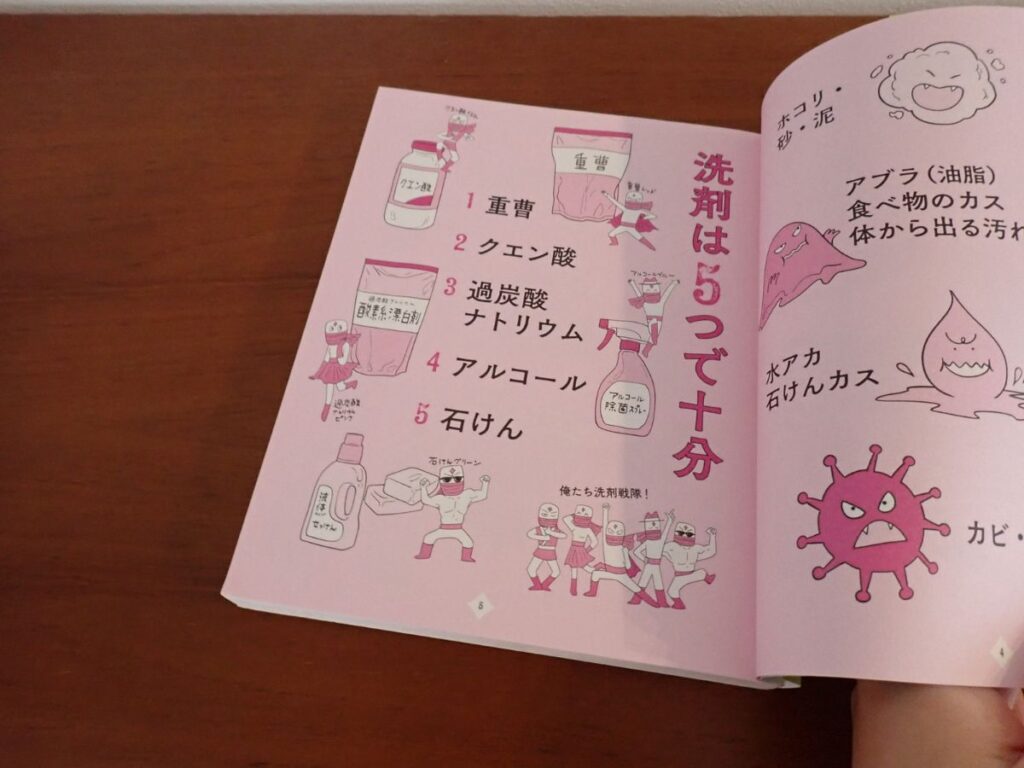 ホコリ・
砂・泥
アブラ（油脂）
食べ物のカス
体から出る汚れ
水アカ
石けんカス
カビ・
4
洗剤は5つで十分
1 重曹
2 クエン酸
3 過炭酸
ナトリウム
4 アルコール
5 石けん
クエン酸
重曹
過炭酸ナトリウム
酸素系漂白剤
アルコールブルー
アルコール
除菌スプレー
過炭酸
ナトリウム
ピンク
液体
石けん
石けんグリーン
俺たち洗剤戦隊！
5